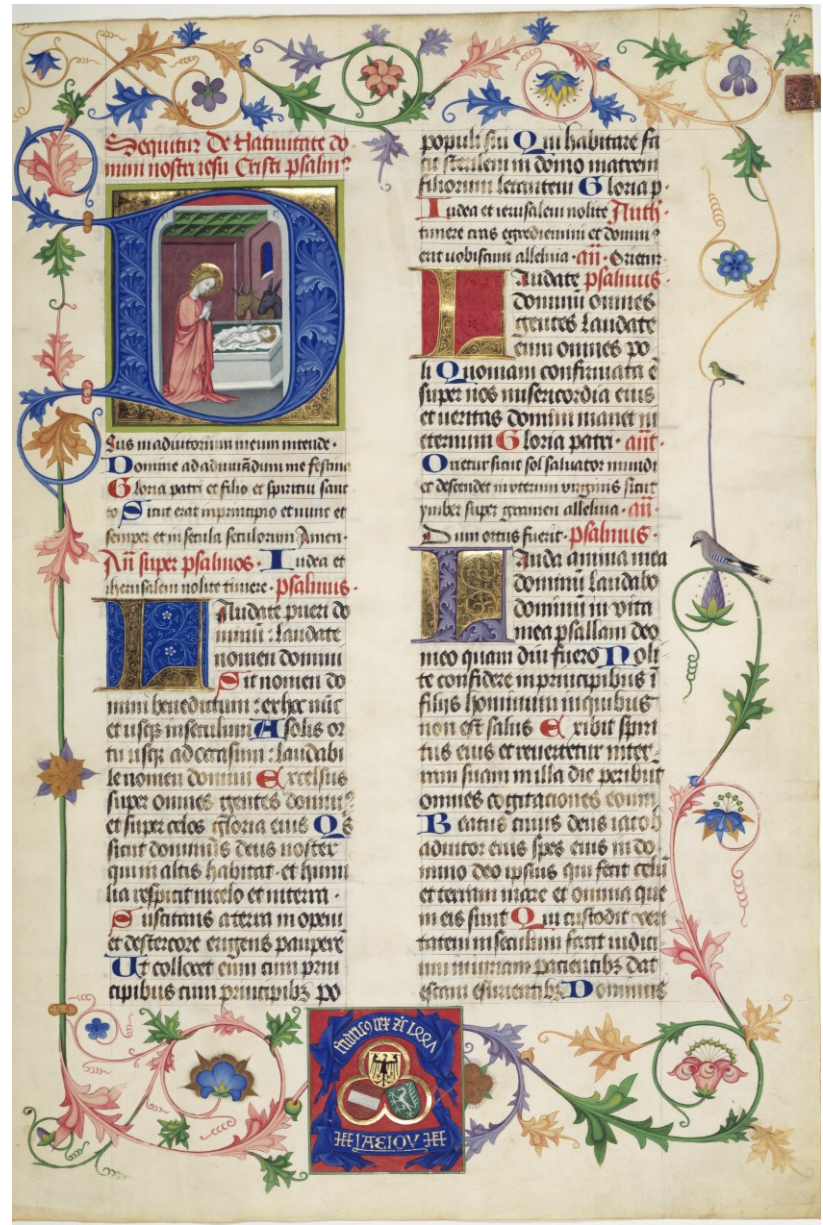 Sequitur De Natiuitate do
mini nostri iesu Cristi psalm⁹
Dus in adiutorium meum intende ·
Domine ad adiuuãdum me festina
Gloria patri et filio et spiritui sanc
to Sicut erat in principio et nunc et
semper et in secula seculorum Amen ·
Añ super psalmos · Iudea et
iherusalem nolite timere · psalmus ·
Laudate pueri do
minũ : laudate
nomen domini
Sit nomen do
mini benedictum : ex hoc nũc
et usqꝫ in seculum A solis or
tu usqꝫ ad occasum : laudabi
le nomen domini Excelsus
super omnes gentes domin⁹
et super celos gloria eius Qs̃
sicut dominus deus noster
qui in altis habitat · et humi
lia respicit in celo et in terra ·
Suscitans a terra inopem
et de stercore erigens pauperẽ
Ut collocet eum cum prin
cipibus cum principibꝫ po
populi sui Qui habitare fa
cit sterilem in domo matrem
filiorum letantem Gloria p ·
Iudea et ierusalem nolite Anth ·
timere cras egrediemini et domin⁹
erit uobiscum alleluia · añ · Orietur
Laudate psalmus ·
dominũ omnes
gentes laudate
eum omnes po
li Quoniam confirmata ẽ
super nos misericordia eius
et ueritas domini manet in
eternum Gloria patri · añt ·
Orietur sicut sol saluator mundi
et descendet in uterum uirginis sicut
ymber super gramen alleluia · añ ·
Dum ortus fuerit · psalmus ·
Lauda anima mea
dominũ laudabo
dominũ in vita
mea psallam deo
meo quam diu fuero Noli
te confidere in principibus ĩ
filijs hominum in quibus
non est salus Exibit spiri
tus eius et reuertetur in ter
ram suam in illa die peribunt
omnes cogitationes eorum
Beatus cuius deus iacob
adiutor eius spes eius in do
mino deo ipsius qui fecit celũ
et terram mare et omnia que
in eis sunt Qui custodit veri
tatem in seculum facit iudici
um iniuriam pacientibꝫ dat
escam esurientibꝫ Dominus
AEIOV